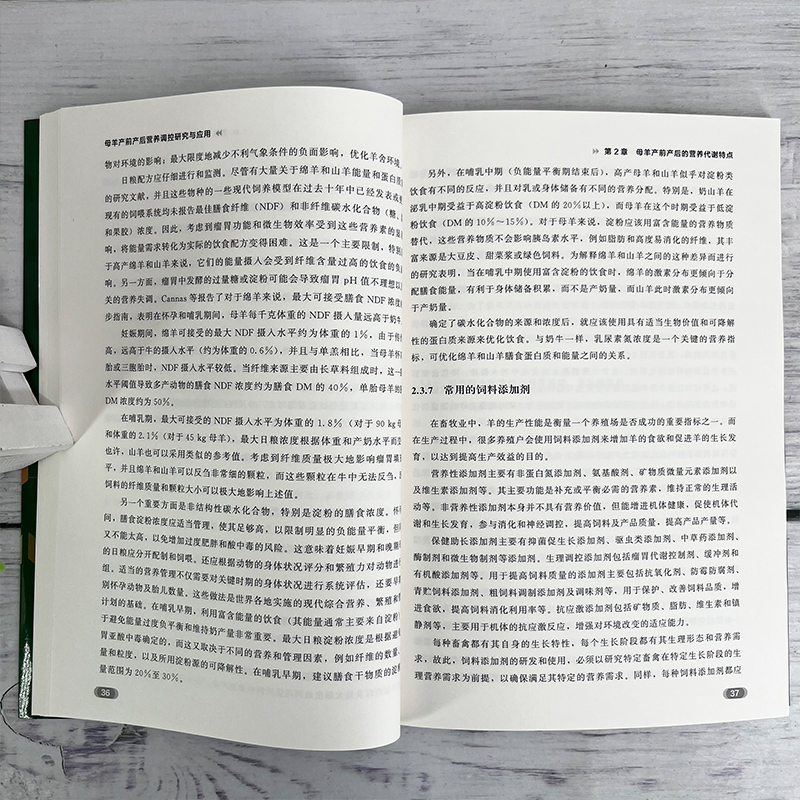 母羊产前产后营养调控研究与应用
物对环境的影响;最大限度地减少不利气象条件的负面影响,优化羊舍环境。
日粮配方应仔细进行和监测。尽管有大量关于绵羊和山羊能量和蛋白质
的研究文献,并且这些物种的一些现代饲养模型在过去十年中已经发表或
现有的饲喂系统均未报告最佳膳食纤维(NDF)和非纤维碳水化合物(糖、
和果胶)浓度。因此,考虑到瘤胃功能和微生物效率受到这些营养素的
响,将能量需求转化为实际的饮食配方变得困难。这是一个主要限制,特别
于高产绵羊和山羊来说,它们的能量摄入会受到纤维含量过高的饮食的负
响。另一方面,瘤胃中发酵的过量糖或淀粉可能会导致瘤胃 pH 值不理想以
关的营养失调。Cannas等报告了对于绵羊来说,最大可接受膳食 NDF 浓度
步指南,表明在怀孕和哺乳期间,母羊每千克体重的 NDF 摄入量远高于奶牛
妊娠期间,绵羊可接受的最大 NDF 摄入水平约为体重的 1%,由于
高,远高于牛的摄入水平(约为体重的 0.6%),并且与单羔相比,当母羊怀
胎或三胞胎时,NDF 摄入水平较低。当纤维来源主要由长草料组成时,这一
水平阈值导致多产动物的膳食 NDF 浓度约为膳食 DM 的 40%,单胎母羊的
DM浓度约为50%。
在哺乳期,最大可接受的 NDF 摄入水平为体重的 1.8%(对于 90 kg
和体重的 2.1%(对于 45 kg 母羊),最大日粮浓度根据体重和产奶水平而
也许,山羊也可以采用类似的参考值。考虑到纤维质量极大地影响瘤胃填
平,并且绵羊和山羊可以反刍非常细的颗粒,而这些颗粒在牛中无法反刍,
饲料的纤维质量和颗粒大小可以极大地影响上述值。
另一个重要方面是非结构性碳水化合物,特别是淀粉的膳食浓度。怀
间,膳食淀粉浓度应适当管理,使其足够高,以限制明显的负能量平衡,但
又不能太高,以免增加过度肥胖和酸中毒的风险。这意味着妊娠早期和晚期
的日粮应分开配制和饲喂。还应根据动物的身体状况评分和繁殖力对动物进
组。适当的营养管理不仅需要对关键时期的身体状况进行系统评估,还要早
别怀孕动物及胎儿数量。这些做法是世界各地实施的现代综合营养、繁殖和
计划的基础。在哺乳早期,利用富含能量的饮食(其能量通常主要来自淀粉
于避免能量过度负平衡和维持奶产量非常重要。最大日粮淀粉浓度是根据避
胃亚酸中毒确定的,而这又取决于不同的营养和管理因素,例如纤维的数量、
量和粒度,以及所用淀粉源的可降解性。在哺乳早期,建议膳食干物质的淀
量范围为 20%至 30%。
36
第 2 章 母羊产前产后的营养代谢特点
另外,在哺乳中期(负能量平衡期结束后),高产母羊和山羊似乎对淀粉类
饮食有不同的反应,并且对乳或身体储备有不同的营养分配。特别是,奶山羊在
泌乳中期受益于高淀粉饮食(DM 的 20%以上),而母羊在这个时期受益于低淀
粉饮食(DM 的 10%~15%)。对于母羊来说,淀粉应该用富含能量的营养物质
替代,这些营养物质不会影响胰岛素水平,例如脂肪和高度易消化的纤维。其丰
富来源是大豆皮、甜菜浆或绿色饲料。为解释绵羊和山羊之间的这种差异而进行
的研究表明,当在哺乳中期使用富含淀粉的饮食时,绵羊的激素分布更倾向于分
配膳食能量,有利于身体储备积累,而不是产奶量,而山羊此时激素分布更倾向
于产奶量。
确定了碳水化合物的来源和浓度后,就应该使用具有适当生物价值和可降解
性的蛋白质来源来优化饮食。与奶牛一样,乳尿素氮浓度是一个关键的营养指
标,可优化绵羊和山羊膳食蛋白质和能量之间的关系。
2.3.7 常用的饲料添加剂
在畜牧业中,羊的生产性能是衡量一个养殖场是否成功的重要指标之一。而
在生产过程中,很多养殖户会使用饲料添加剂来增加羊的食欲和促进羊的生长发
育,以达到提高生产效益的目的。
营养性添加剂主要有非蛋白氮添加剂、氨基酸剂、矿物质微量元素添加剂以
及维生素添加剂等。其主要功能是补充或平衡必需的营养素,维持正常的生理活
动等。非营养性添加剂本身并不具有营养价值,但能增进机体健康,促使机体代
谢和生长发育,参与消化和神经调控,提高饲料及产品质量,提高产品产量等。
保健助长添加剂主要有抑菌促生长添加剂、驱虫类添加剂、中草药添加剂、
酶制剂和微生物制剂等添加剂。生理调控添加剂包括瘤胃代谢控制剂、缓冲剂和
有机酸添加剂等。用于提高饲料质量的添加剂主要包括抗氧化剂、防霉防腐剂、
青贮饲料添加剂、粗饲料调制添加剂及调味剂等,用于保护、改善饲料品质,增
进食欲,提高饲料消化利用率等。抗应激添加剂包括矿物质、脂肪、维生素和镇
静剂等,主要用于机体的抗应激反应,增强对环境改变的适应能力。
每种畜禽都有其自身的生长特性,每个生长阶段都有其生理形态和营养需
求,故此,饲料添加剂的研发和使用,必须以研究特定畜禽在特定生长阶段的生
理营养需求为前提,以确保满足其特定的营养需求。同样,每种饲料添加剂都应
37